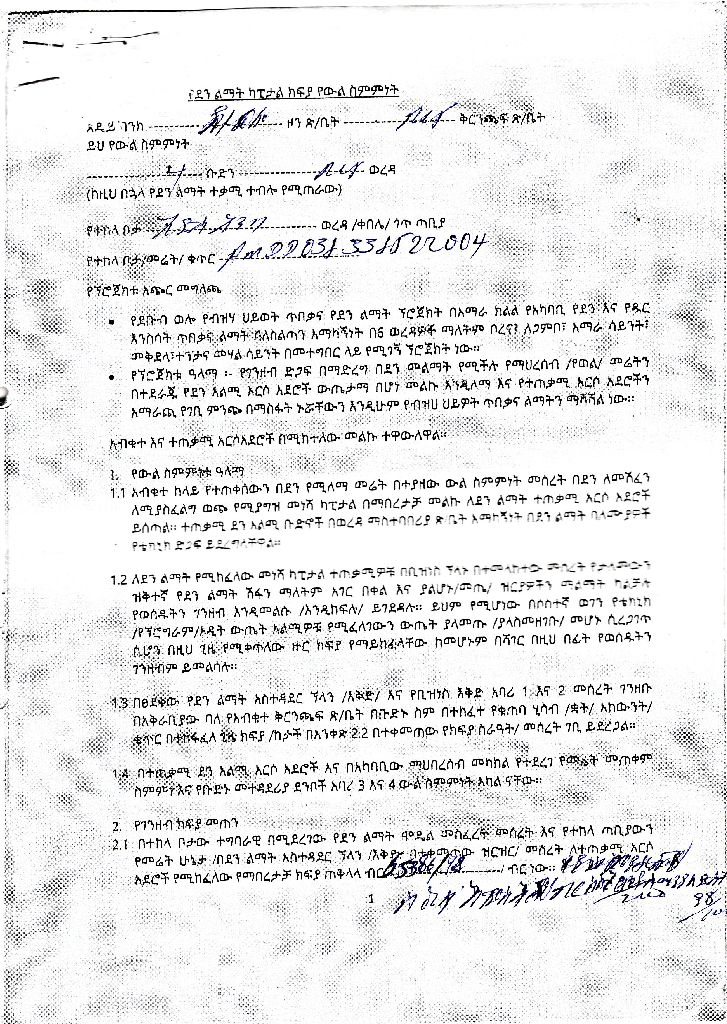 የደን ልማት ካፒታል ክፍያ የውል ስምምነት
ባንክ ዞን ጽ/ቤት ቅርንጫፍ ጽ/ቤት
ይህ የውል ስምምነት
ቡድን ወረዳ
(ከዚህ በኋላ የደን ልማት ተቃሚ ተብሎ የሚጠራው)
የተከላ ቦታ ወረዳ /ቀበሌ/ ጎጥ ጣቢያ
የተከላ ቦታ/መሬት/ ቁጥር
የፕሮጀክቱ አጭር መግለጫ
• የደቡብ ወሎ የብዝሃ ህይወት ጥበቃና የደን ልማት ፕሮጀክት በአማራ ክልል የአካባቢ የደን እና የዱር
እንስሳት ጥበቃና ልማት ባለስልጣን አማካኝነት በ6 ወረዳዎች ማለትም ቦረና፣ ሌጋምቦ፣ አማራ ሳይንት፣
መቅደላ፣ተንታና መሃል ሳይንት በመተግበር ላይ የሚገኝ ፕሮጀክት ነው።
• የፕሮጀክቱ ዓላማ ፡- የገንዘብ ድጋፍ በማድረግ በደን መልማት የሚችሉ የማህረሰብ /የወል/ መሬትን
በተደራጁ የደን አልሚ አርሶ አደሮች ውጤታማ በሆነ መልኩ እንዲለማ እና የተጠቃሚ አርሶ አደሮችን
አማራጪ የገቢ ምንጭ በማስፋት ኑሯቸውን እንዲሁም የብዝሀ ህይዎት ጥበቃና ልማትን ማሻሻል ነው።
አብቁተ እና ተጠቃሚ አርሶአደሮች በሚከተለው መልኩ ተዋውለዋል።
1. የውል ስምምነቱ ዓላማ
1.1 አብቁተ ከላይ የተጠቀሰውን በደን የሚለማ መሬት በተያዘው ውል ስምምነት መሰረት በደን ለመሸፈን
ለሚያስፈልግ ወጭ የሚያግዝ መነሻ ካፒታል በማበረታቻ መልኩ ለደን ልማት ተጠቃሚ አርሶ አደሮች
ይሰጣል። ተጠቃሚ ደን አልሚ ቡድኖች በወረዳ ማስተባበሪያ ጽ/ቤት አማካኝነት በደን ልማት ባለሙያዎች
የቴክኒክ ድጋፍ ይደረግላቸዋል።
1.2 ለደን ልማት የሚከፈለው መነሻ ካፒታል ተጠቃሚዎቹ በቢዝነስ ፕላኑ በተመላከተው መሰረት የታለመውን
ዝቅተኛ የደን ልማት ሽፋን ማለትም አገር በቀል እና ያልሆኑ/መጤ/ ዝርያዎችን ማልማት ካልቻሉ
የወሰዱትን ገንዘብ እንዲመልሱ /እንዲከፍሉ/ ይገደዳሉ። ይህም የሚሆነው በሶስተኛ ወገን የቴክኒክ
/የፕሮግራም/ኦዲት ውጤት አልሚዎቹ የሚፈለገውን ውጤት ያላመጡ /ያላስመዘገቡ/ መሆኑ ሲረጋገጥ
ሲሆን በዚህ ጊዜ የሚቀጥለው ዙር ክፍያ የማይከፈላቸው ከመሆኑም በሻገር በዚህ በፊት የወሰዱትን
ገንዘብም ይመልሳሉ።
1.3 በፀደቀው የደን ልማት አስተዳደር ፕላን /እቅድ/ እና የቢዝነስ እቅድ አባሪ 1 እና 2 መሰረት ገንዘቡ
በአቅራቢያው ባለ የአብቁተ ቅርንጫፍ ጽ/ቤት በቡድኑ ስም በተከፈተ የቁጠባ ሂሳብ /ቋት/ አካውንት/
ቁጥር በተከፋፈለ ጊዜ ክፍያ /ከታች በአንቀጽ 2.2 በተቀመጠው የክፍያ ስራዓት/ መሰረት ገቢ ይደረጋል።
1.4 በተጠቃሚ ደን አልሚ አርሶ አደሮች እና በአካባቢው ማህበረሰብ መካከል የተደረገ የመሬት መጠቀም
ስምምነት እና የቡድኑ መተዳደሪያ ደንቦች አባሪ 3 እና 4 ውል ስምምነት አካል ናቸው።
2. የገንዘብ ክፍያ መጠን
2.1 በተከላ ቦታው ተግባራዊ በሚደረገው የደን ልማት ሞዴል መስፈረት መሰረት እና የተከላ ጣቢያውን
የመሬት ሁኔታ /በደን ልማት አስተዳደር ፕላን /እቅዱ በተቀመጠው ዝርዝር/ መሰረት ለተጠቃሚ አርሶ
አደሮች የሚከፈለው የማበረታቻ ክፍያ ጠቅላላ ብር / ብር ነው።
1